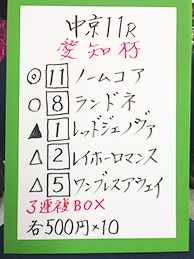 中京11R
愛知杯
◎ 11 ノームコア
○ 8 ランドネ
▲ 1 レッドジェノヴァ
△ 2 レイホーロマンス
△ 5 ワンブレスアウェイ
3連複BOX
各500円×10